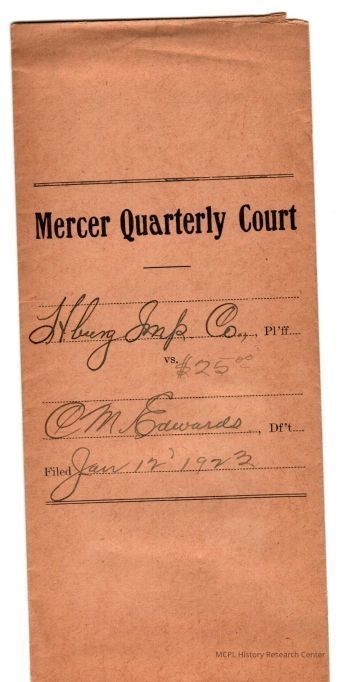 Mercer Quarterly Court
H'burg Imp. Co., Pl'ff
vs. $25.00
O M. Edwards, Df't
Filed Jan 12' 1923
MCPL History Research Center